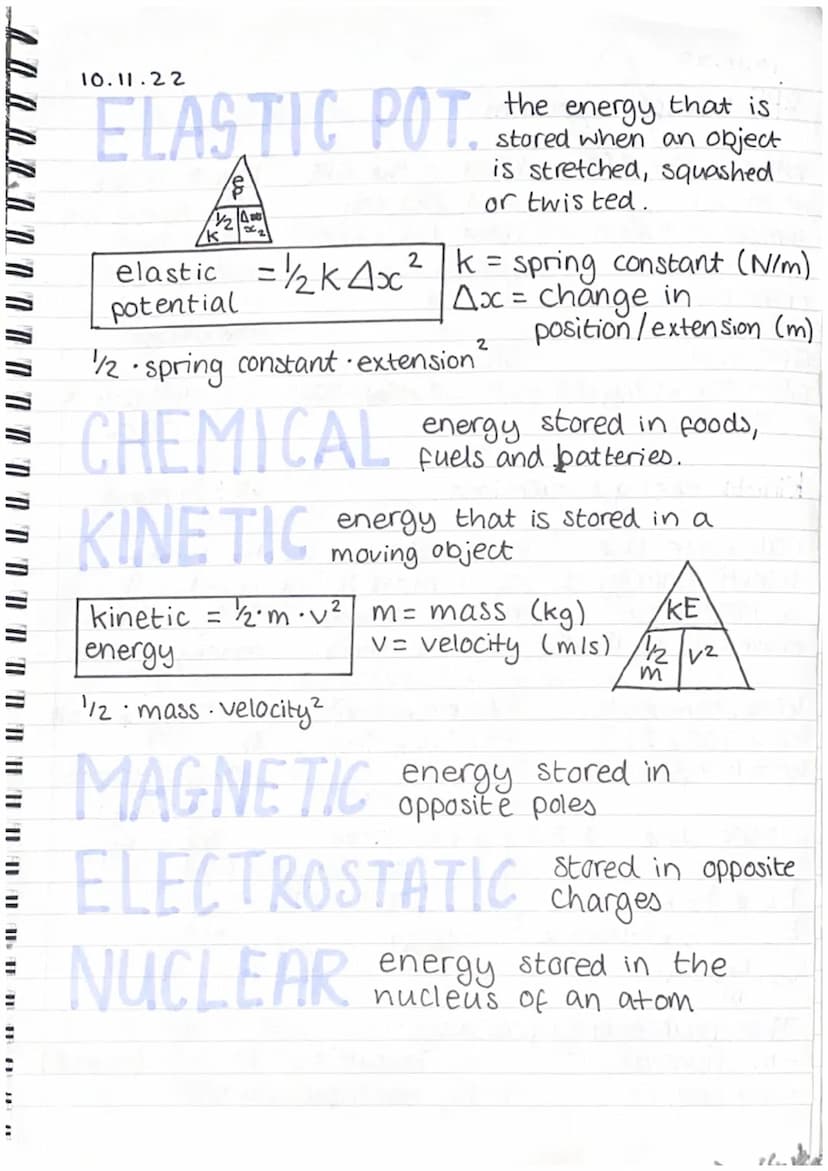 10.11.22
ELASTIC POT.
the energy that is
stored when an object
is stretched, squashed
or twisted.
ep
½ k
elastic potential = ½ k Δx²
k = spring constant (N/m)
Δx = change in
position/extension (m)
½ · spring constant · extension²
CHEMICAL
energy stored in foods,
fuels and batteries.
KINETIC
energy that is stored in a
moving object
kinetic energy = ½ · m · v²
m = mass (kg)
v = velocity (m/s)
KE
½ m v²
½ · mass · velocity²
MAGNETIC
energy stored in
opposite poles
ELECTROSTATIC
stored in opposite
charges
NUCLEAR
energy stored in the
nucleus of an atom